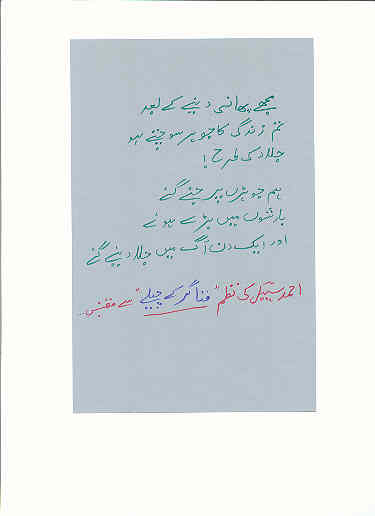 مجھے پھانسی دینے کے بعد
تم زندگی کا جوہر سوچتے ہو
جلاد کی طرح!
ہم جوہڑوں پر جنے گئے
بارشوں میں بڑے ہوئے
اور ایک دن آگ میں جلا دیئے گئے
احمد سہیل کی نظم "فنا گر کے چیلے" سے مقتبس